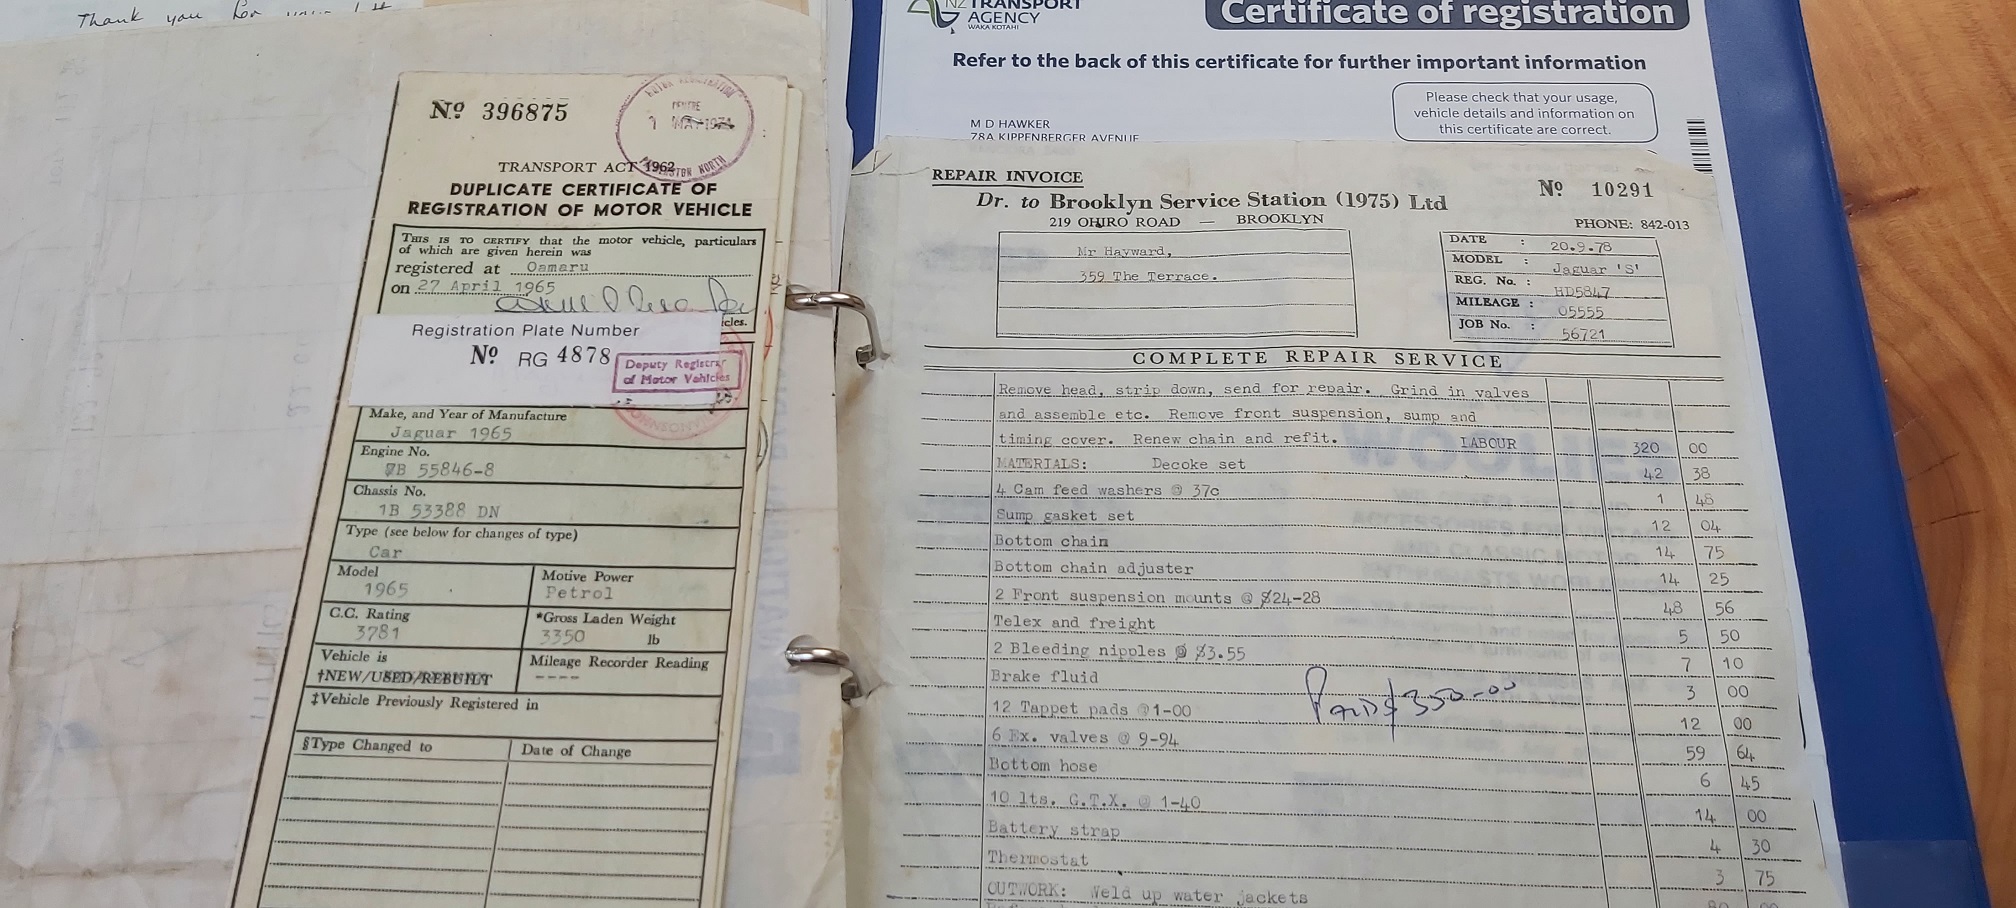 Thank you for your
No 396875
MOTOR REGISTRATION
CENTRE
NORTH
TRANSPORT ACT 1962
DUPLICATE CERTIFICATE OF
REGISTRATION OF MOTOR VEHICLE
THIS IS TO CERTIFY that the motor vehicle, particulars
of which are given herein was
registered at Oamaru
on 27 April 1965
cles.
Registration Plate Number
No RG 4878
Deputy Registrar
of Motor Vehicles
Make, and Year of Manufacture
Jaguar 1965
Engine No.
7B 55846-8
Chassis No.
1B 53388 DN
Type (see below for changes of type)
Car
Model
1965
Motive Power
Petrol
C.C. Rating
3781
*Gross Laden Weight
3350 lb
Vehicle is
†NEW/USED/REBUILT
Mileage Recorder Reading
----
‡Vehicle Previously Registered in
§Type Changed to
Date of Change
NZ TRANSPORT
AGENCY
WAKA KOTAHI
Certificate of registration
Refer to the back of this certificate for further important information
Please check that your usage,
vehicle details and information on
this certificate are correct.
M D HAWKER
78A KIPPENBERGER AVENUE
REPAIR INVOICE
No 10291
Dr. to Brooklyn Service Station (1975) Ltd
219 OHIRO ROAD — BROOKLYN
PHONE: 842-013
Mr Hayward,
359 The Terrace.
DATE : 20.9.78
MODEL : Jaguar 'S'
REG. No. : HD5847
MILEAGE : 05555
JOB No. : 56721
COMPLETE REPAIR SERVICE
Remove head, strip down, send for repair. Grind in valves
and assemble etc. Remove front suspension, sump and
timing cover. Renew chain and refit. LABOUR 320 00
MATERIALS: Decoke set 42 38
4 Cam feed washers @ 37c 1 48
Sump gasket set 12 04
Bottom chain 14 75
Bottom chain adjuster 14 25
2 Front suspension mounts @ $24-28 48 56
Telex and freight 5 50
2 Bleeding nipples @ $3.55 7 10
Brake fluid 3 00
Paid $350-00
12 Tappet pads @1-00 12 00
6 Ex. valves @ 9-94 59 64
Bottom hose 6 45
10 lts. G.T.X. @ 1-40 14 00
Battery strap 4 30
Thermostat 3 75
OUTWORK: Weld up water jackets